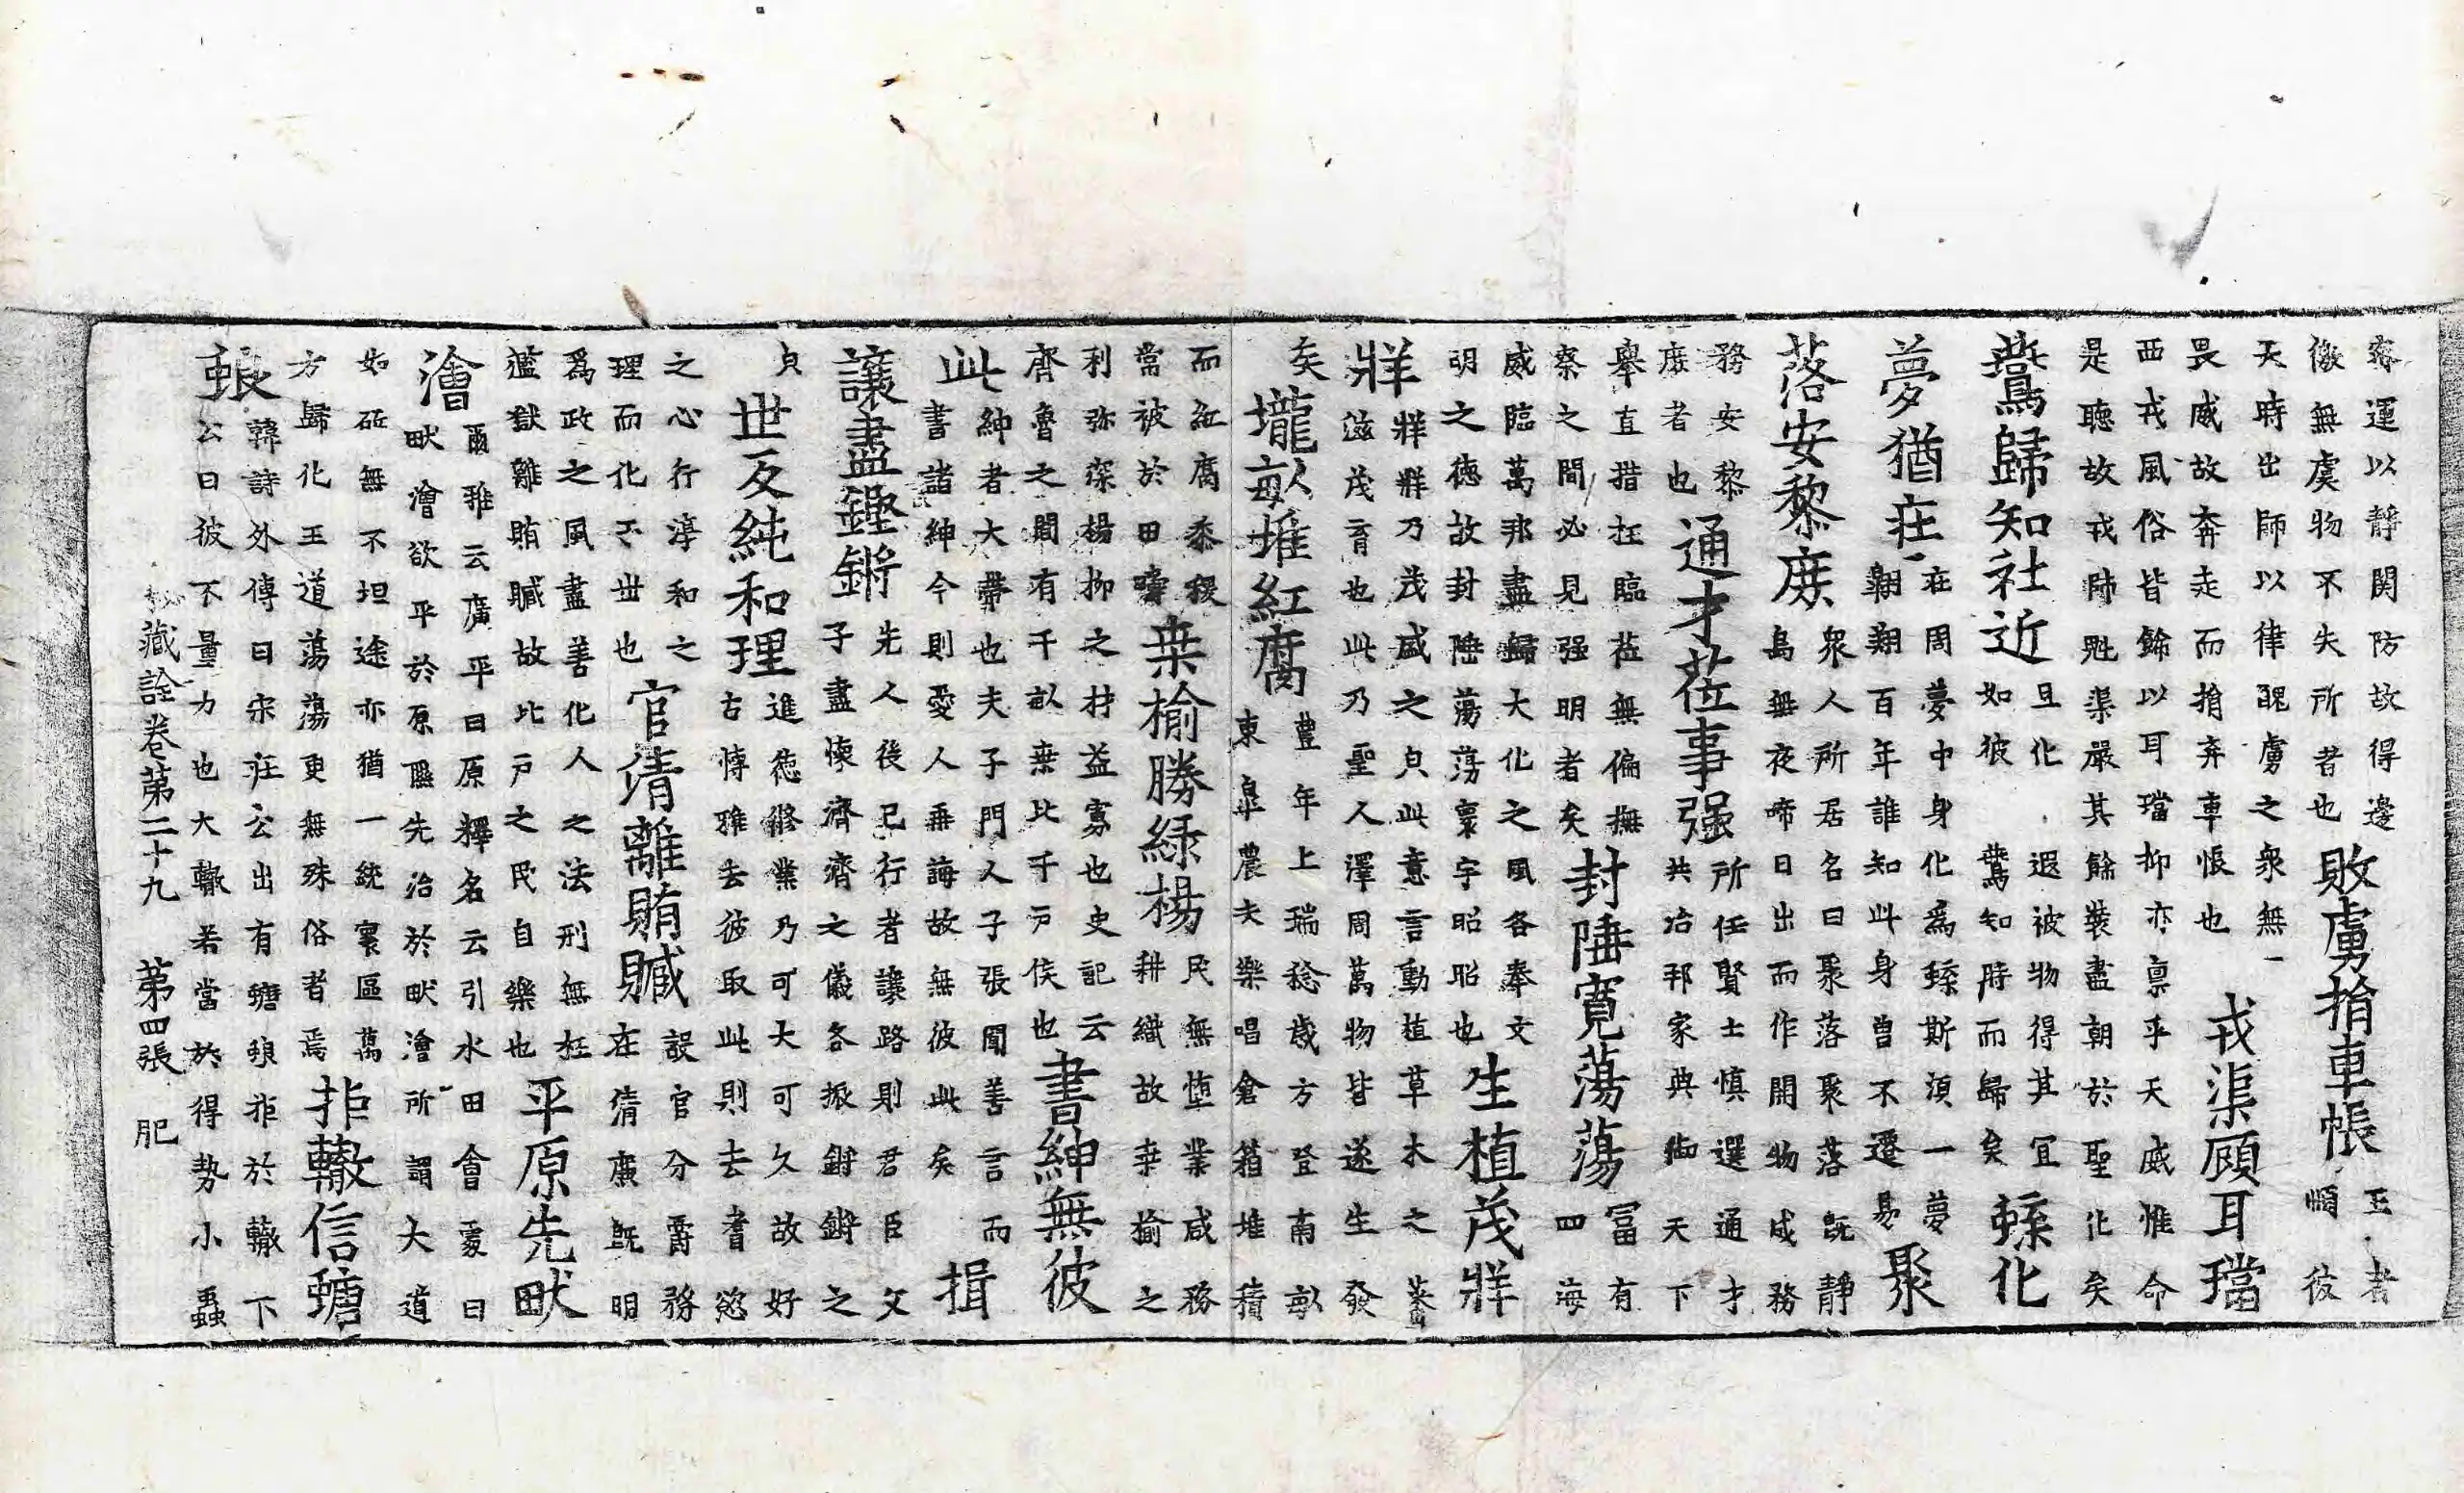 泰運以靜関防故得邊
徼無虞物不失所者也
敗虜捎車帳
王者
順彼
天時出師以律醜虜之衆無
畏威故奔走而捎弃車帳也
戎渠顧耳璫
西戎風俗皆餙以耳璫抑亦禀乎天威惟命
是聽故戎帥魁渠嚴其餘裝盡朝於聖化矣
鷰歸知社近
且化遐被物得其宜
如彼鷰知時而歸矣
蝝化
夢猶在
在周夢中身化為蝝斯湏一夢
翱翔百年誰知此身曽不遷易
聚
落安黎庶
衆人所居名曰聚落聚落旣靜
烏無夜啼日出而作開物成務
務安黎
庶者也
通才莅事强
所任賢士慎選通才
共治邦家典御天下
舉直措枉臨莅無偏撫
察之間必見强明者矣
封陲寬蕩蕩
冨有
四海
威臨萬邦盡歸大化之風各奉文
明之德故封陲蕩蕩寰宇昭昭也
生植茂牂
牂
牂牂乃茂盛之皃此意言動植草木之葉
滋茂育也此乃聖人澤周萬物皆遂生發
矣
壠畝堆紅腐
豊年上瑞稔歲方登南畝
東臯農夫樂唱倉箱堆積
而紅腐黍稷
當被於田疇
桒榆勝綠楊
民無墮業咸務
耕織故桒榆之
利弥深楊柳之材益寡也史記云
齊魯之間有千畝桒比千戸侯也
書紳無彼
此
紳者大帶也夫子門人子張聞善言而
書諸紳今則愛人垂誨故無彼此矣
揖
讓盡鏗鏘
先人後已行者讓路則君臣父
子盡懷濟濟之儀各振鏘鏘之
皃
世反純和理
進德修業乃可大可久故好
古博雅去彼取此則去奢慾
之心行淳和之
理而化天丗也
官清離賄贓
設官分爵務
在清廉旣明
爲政之風盡善化人之法刑無枉
濫獄離賄贓故比戸之民自樂也
平原先畎
澮
爾雅云廣平曰原釋名云引水田會爰曰
畎澮欲平於原隰先治於畎澮所謂大道
如砥無不坦途亦猶一統寰區萬
方歸化王道蕩蕩更無殊俗者焉
拒轍信螗
蜋
韓詩外傳曰宋莊公出有螗蜋拒於轍下
公曰彼不量力也大轍若當於得势小蟲
秘藏詮卷第二十九 第四張 肥